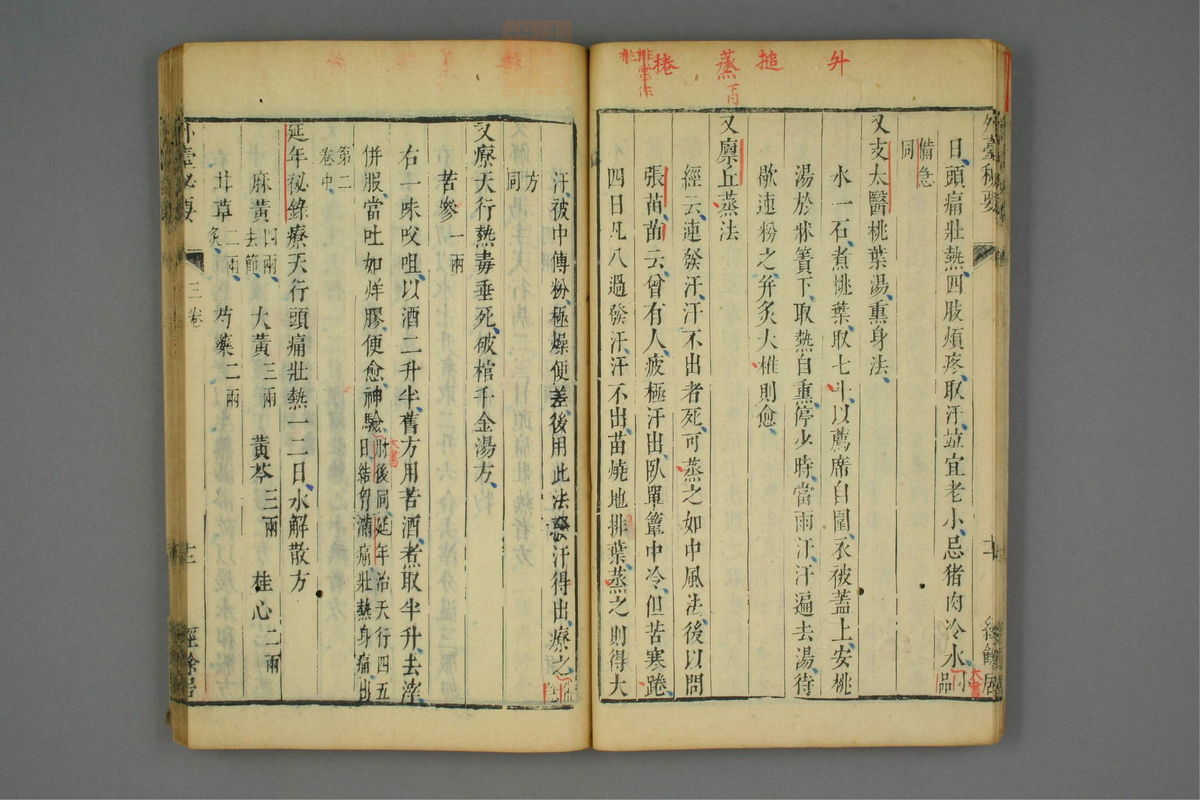 外臺秘要
日頭痛壯熱四肢煩疼取汗並宜老小忌猪肉冷水小品
備急同
又支太醫桃葉湯熏身法
水一石煮桃葉取七斗以薦席自圍衣被蓋上安桃
湯於牀簀下取熱自熏停少時當雨汗汗遍去湯待
歇速粉之并灸大椎則愈
又廪丘蒸法
經云連發汗汗不出者死可蒸之如中風法後以問
張苗苗云曾有人疲極汗出臥單簟中冷但苦寒踡
四日凡八過發汗汗不出苗燒地排葉蒸之則得大
汗被中傅粉極燥便差後用此法發汗得出療之
方同
又療天行熱毒垂死破棺千金湯方
苦參一兩
右一味㕮咀以酒二升半舊方用苦酒煮取半升去滓
併服當吐如烊膠便愈神驗肘後同延年治天行四五日結胷滿痛壯熱身痛出
第二卷中
延年秘錄療天行頭痛壯熱一二日水解散方
麻黃四兩去節 大黃三兩 黃芩三兩 桂心二兩
甘草二兩炙 芍藥二兩
外臺秘要 三卷 十二 經餘居
升 搥 蒸 捲